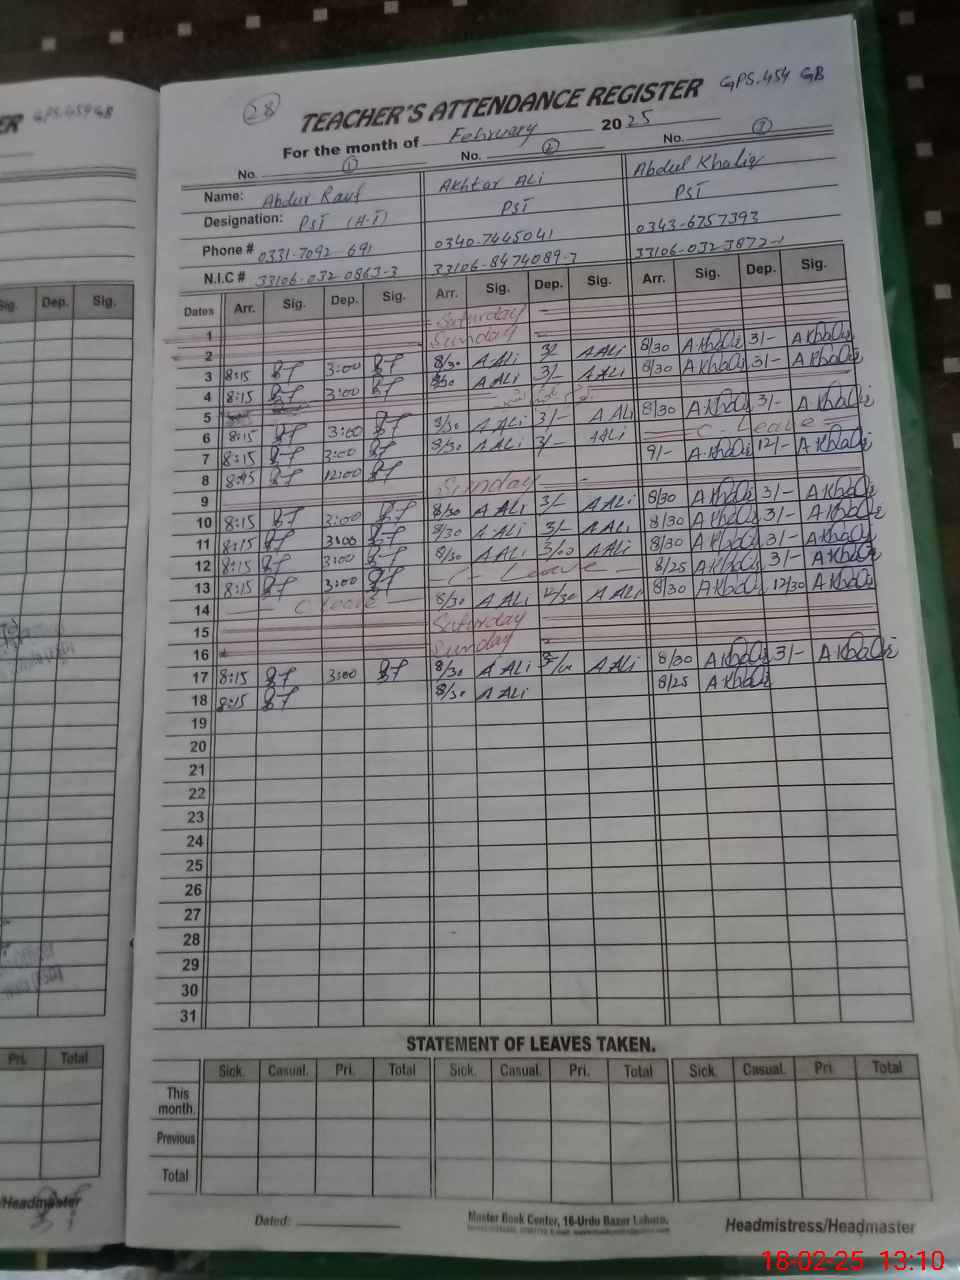 GPS.454 GB
28
TEACHER'S ATTENDANCE REGISTER GPS.454 GB
For the month of February 2025
No. 1 No. 2 No. 3
Name: Abdur Rauf Akhtar Ali Abdul Khaliq
Designation: PST (H-T) PST PST
Phone # 0331-7092-691 0340-7445041 0343-6757393
N.I.C # 33106-032 0863-3 33106-8474089-7 33106-032 3872-1
Dates Arr. Sig. Dep. Sig. Arr. Sig. Dep. Sig. Arr. Sig. Dep. Sig.
1 Saturday
2 Sunday
3 8:15 3:00 8/30 A ALi 3/- A ALi 8/30 A Khaliq 3/- A Khaliq
4 8:15 3:00 8/30 A ALi 3/- A ALi 8/30 A Khaliq 3/- A Khaliq
5
6 8:15 3:00 8/30 A ALi 3/- A ALi 8/30 A Khaliq 3/- A Khaliq
7 8:15 3:00 8/30 A ALi 3/- A ALi C-Leave
8 8:45 12:00 9/- A Khaliq 12/- A Khaliq
9 Sunday
10 8:15 3:00 8/30 A ALi 3/- A ALi 8/30 A Khaliq 3/- A Khaliq
11 8:15 3:00 8/30 A ALi 3/- A ALi 8/30 A Khaliq 3/- A Khaliq
12 8:15 3:00 8/30 A ALi 3/00 A ALi 8/30 A Khaliq 3/- A Khaliq
13 8:15 3:00 C-Leave 8/25 A Khaliq 3/- A Khaliq
14 C leave 8/30 A ALi 12/30 A ALi 8/30 A Khaliq 12/30 A Khaliq
15 Saturday
16 Sunday
17 8:15 3:00 8/30 A ALi A ALi 8/30 A Khaliq 3/- A Khaliq
18 8:15 8/30 A ALi 8/25 A Khaliq
19
20
21
22
23
24
25
26
27
28
29
30
31
Sig. Dep. Sig.
STATEMENT OF LEAVES TAKEN.
Sick. Casual. Pri. Total Sick. Casual. Pri. Total Sick. Casual. Pri. Total
This month.
Previous
Total
Pri. Total
/Headmaster
Dated: Master Book Center, 16-Urdu Bazar Lahore. Headmistress/Headmaster
18-02-25 13:10